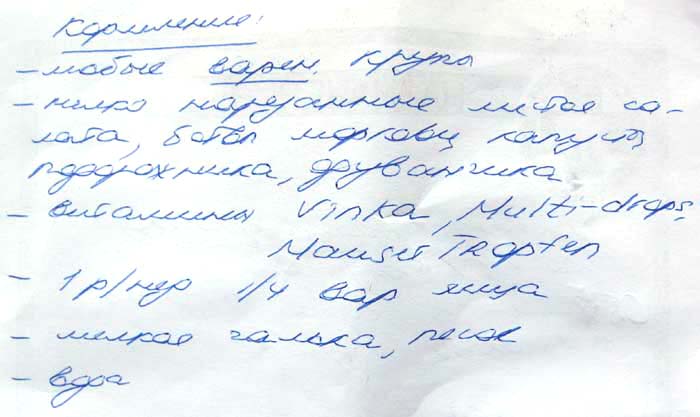 Кормление:
- любые варен. крупы
- мелко нарезанные листья са-
лата, ботвы моркови, капусты,
подорожника, одуванчика
- витамины Vinka, Multi-drops,
Mauser Tropfen
- 1 р/нед 1/4 вар яйца
- мелкая галька, песок
- вода